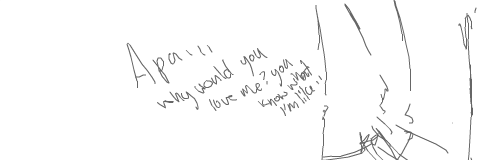 Apa...
why would you
love me? you
know what
I'm like..